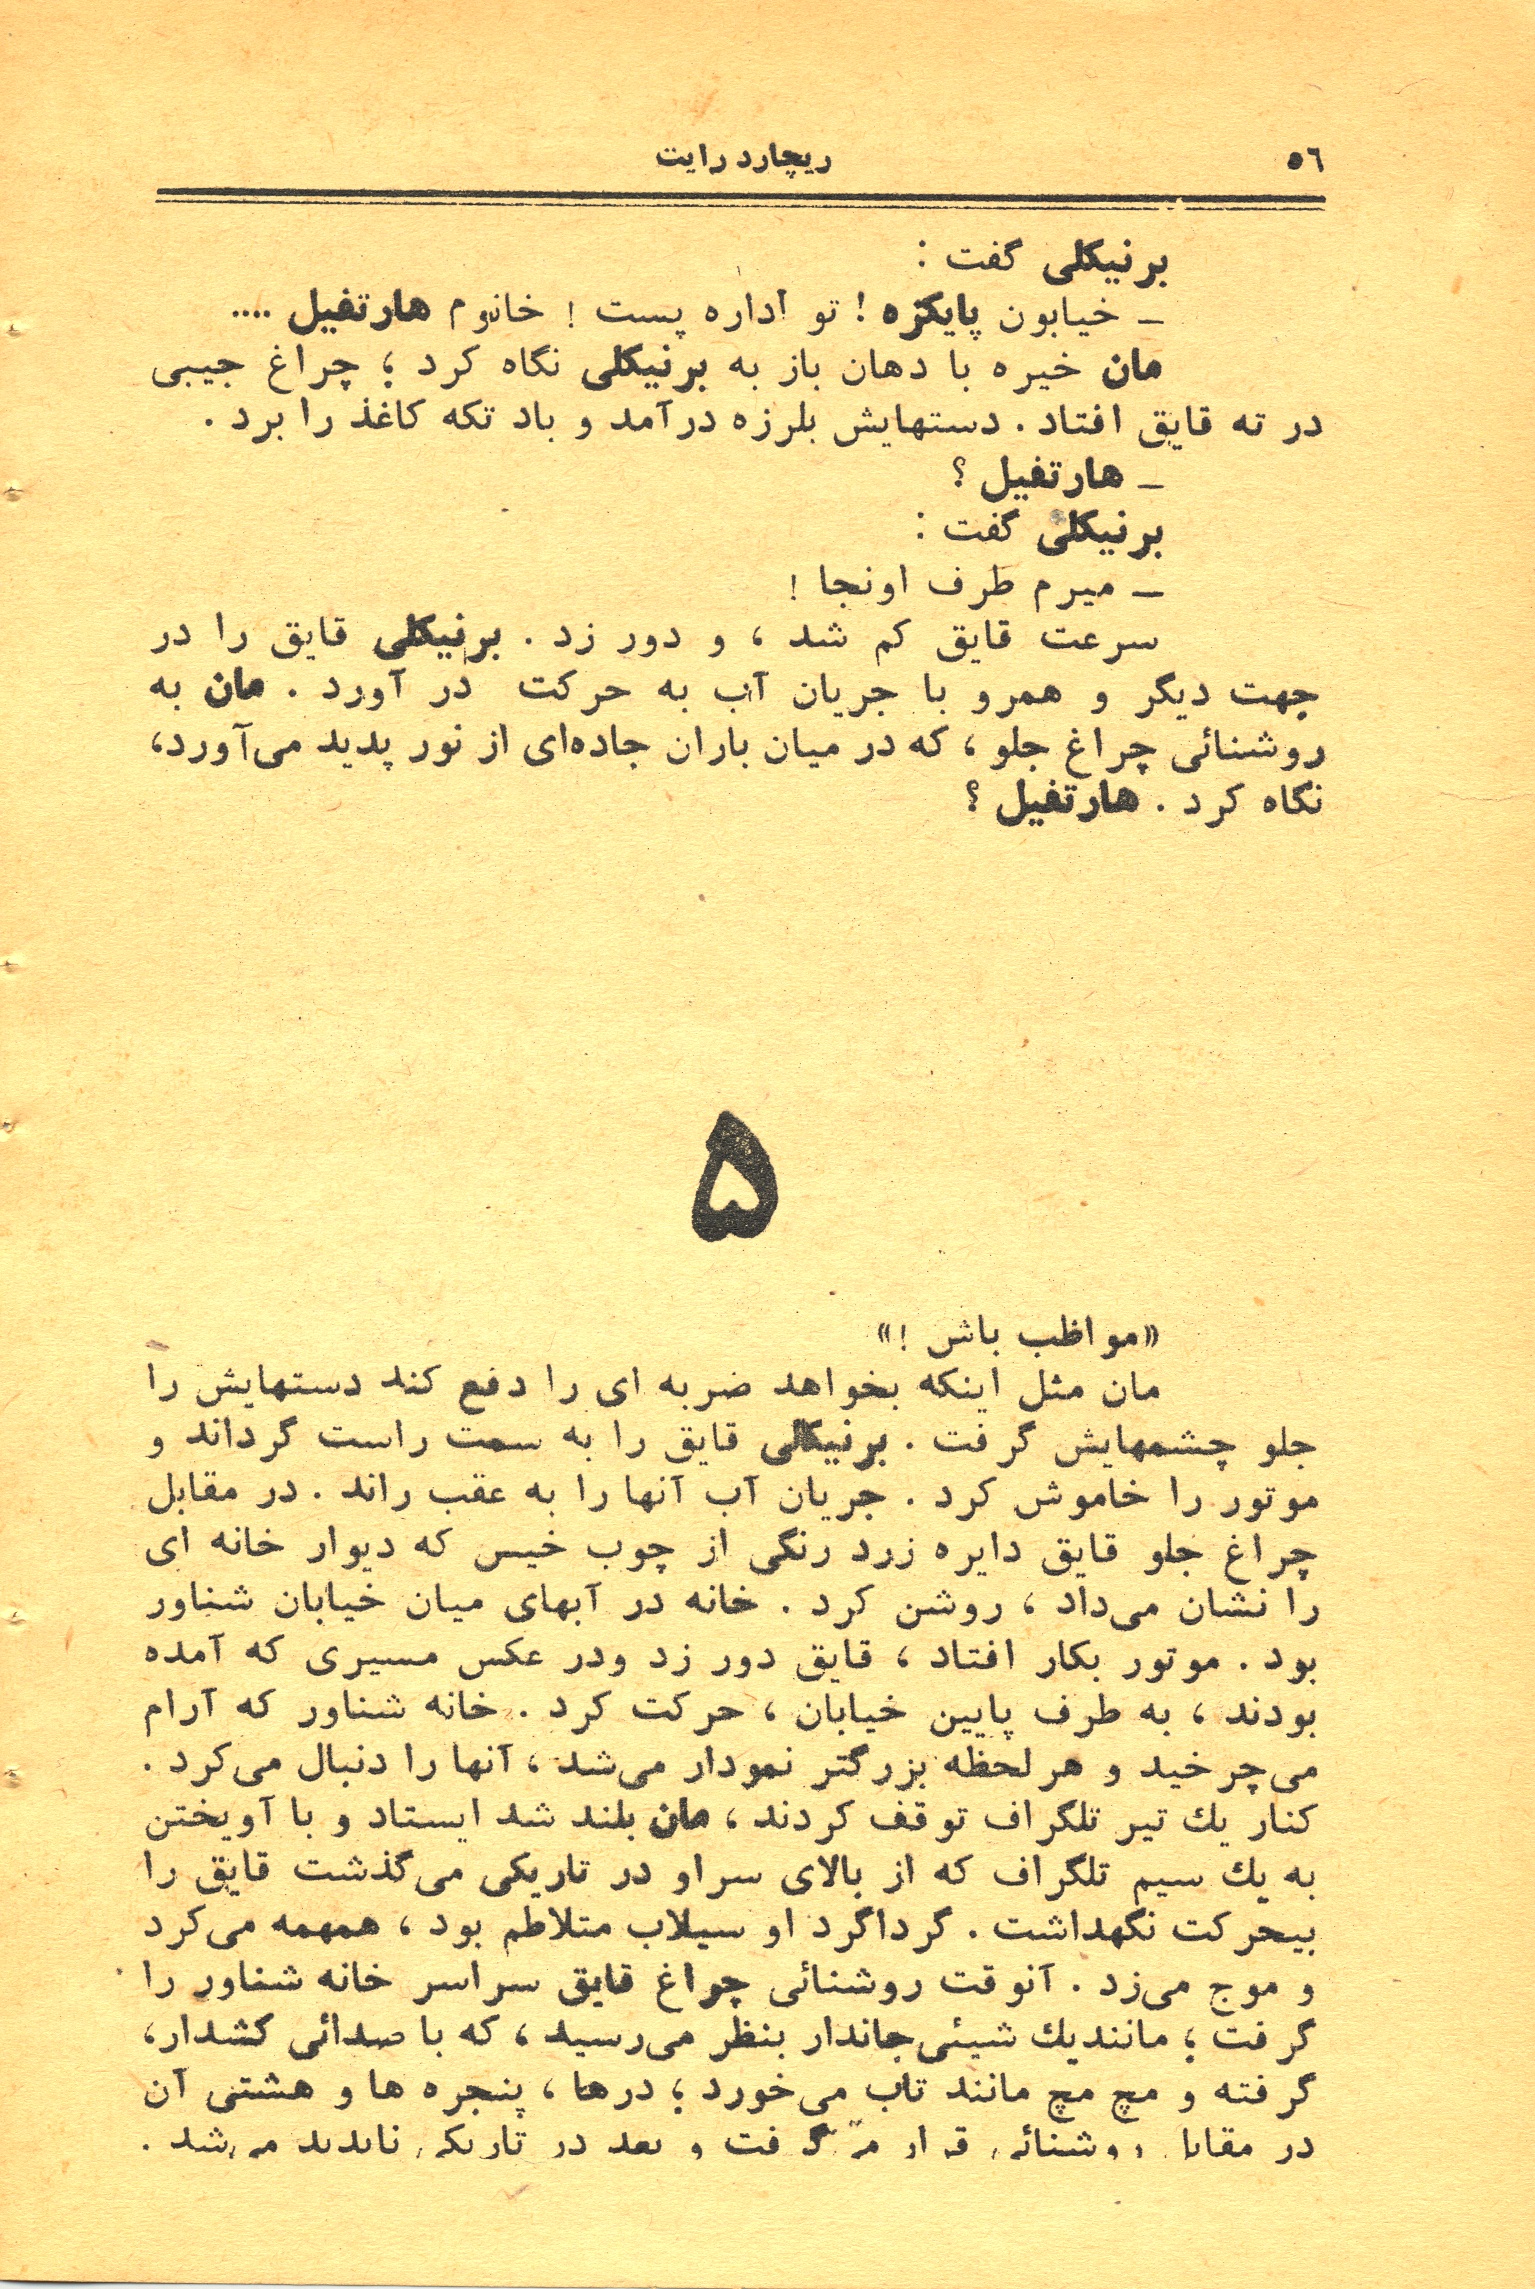 ۵۶
ریچارد رایت
برنیکلی گفت :
ــ خیابون پایکزه ! تو اداره پست ! خانوم هارتفیل ....
مان خیره با دهان باز به برنیکلی نگاه کرد ؛ چراغ جیبی
در ته قایق افتاد . دستهایش بلرزه درآمد و باد تکه کاغذ را برد .
ــ هارتفیل ؟
برنیکلی گفت :
ــ میرم طرف اونجا !
سرعت قایق کم شد ، و دور زد . برنیکلی قایق را در
جهت دیگر و همرو با جریان آب به حرکت در آورد . مان به
روشنائی چراغ جلو ، که در میان باران جاده‌ای از نور پدید می‌آورد،
نگاه کرد . هارتفیل ؟
۵
«مواظب باش !»
مان مثل اینکه بخواهد ضربه ای را دفع کند دستهایش را
جلو چشمهایش گرفت . برنیکلی قایق را به سمت راست گرداند و
موتور را خاموش کرد . جریان آب آنها را به عقب راند . در مقابل
چراغ جلو قایق دایره زرد رنگی از چوب خیس که دیوار خانه ای
را نشان می‌داد ، روشن کرد . خانه در آبهای میان خیابان شناور
بود . موتور بکار افتاد ، قایق دور زد ودر عکس مسیری که آمده
بودند ، به طرف پایین خیابان ، حرکت کرد . خانه شناور که آرام
می‌چرخید و هر لحظه بزرگتر نمودار می‌شد ، آنها را دنبال می‌کرد .
کنار یك تیر تلگراف توقف کردند ، مان بلند شد ایستاد و با آویختن
به یك سیم تلگراف که از بالای سراو در تاریکی می‌گذشت قایق را
بیحرکت نگهداشت . گرداگرد او سیلاب متلاطم بود ، همهمه می‌کرد
و موج می‌زد . آنوقت روشنائی چراغ قایق سراسر خانه شناور را
گرفت ؛ مانندیك شیئی‌جاندار بنظر می‌رسید ، که با صدائی کشدار،
گرفته و مچ مچ مانند تاب می‌خورد ؛ درها ، پنجره ها و هشتی آن
در مقابل روشنائی قرار می‌گرفت و بعد در تاریکی ناپدید می‌شد .